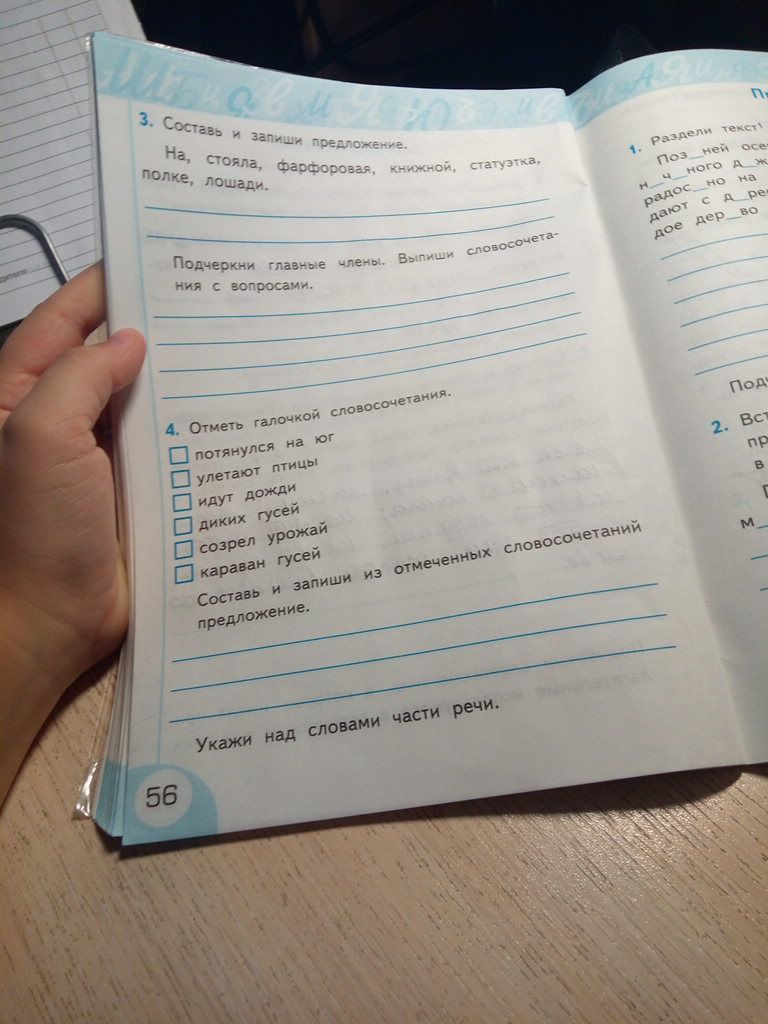 3. Составь и запиши предложение.
На, стояла, фарфоровая, книжной, статуэтка,
полке, лошади.
Подчеркни главные члены. Выпиши словосочета-
ния с вопросами.
4. Отметь галочкой словосочетания.
потянулся на юг
улетают птицы
идут дожди
диких гусей
созрел урожай
караван гусей
Составь и запиши из отмеченных словосочетаний
предложение.
Укажи над словами части речи.
56
1. Раздели текст!
Поз_ней осе
н_ч_ного д_ж
радос_но на
дают с д_ре
дое дер_во
Под
2. Вст
пр
в
м_